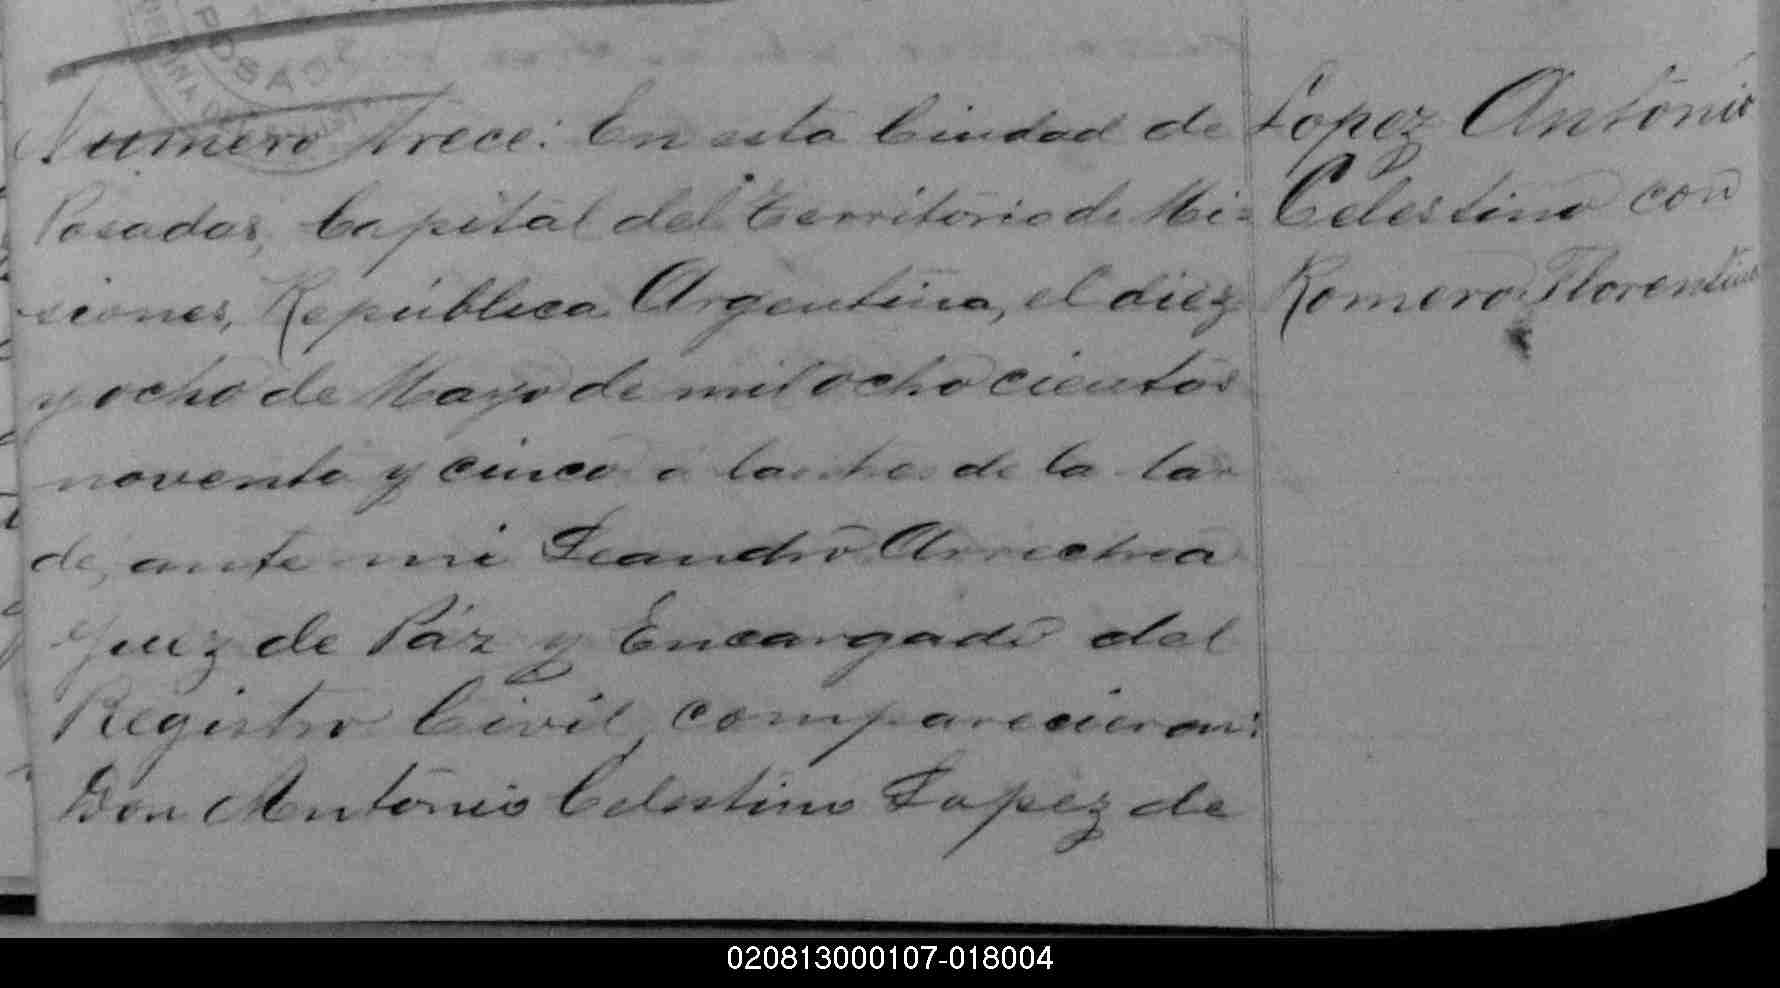 POSADAS
Numero trece: En esta Ciudad de
Posadas, Capital del Territorio de Mi-
siones, República Argentina, el diez
y ocho de Mayo de mil ochocientos
noventa y cinco a las tres de la tar
de, ante mi Leandro Arrechea
Juez de Páz y Encargado del
Registro Civil, comparecieron:
Don Antonio Celestino Lopez de
Lopez Antonio
Celestino con
Romero Florentina
020813000107-018004